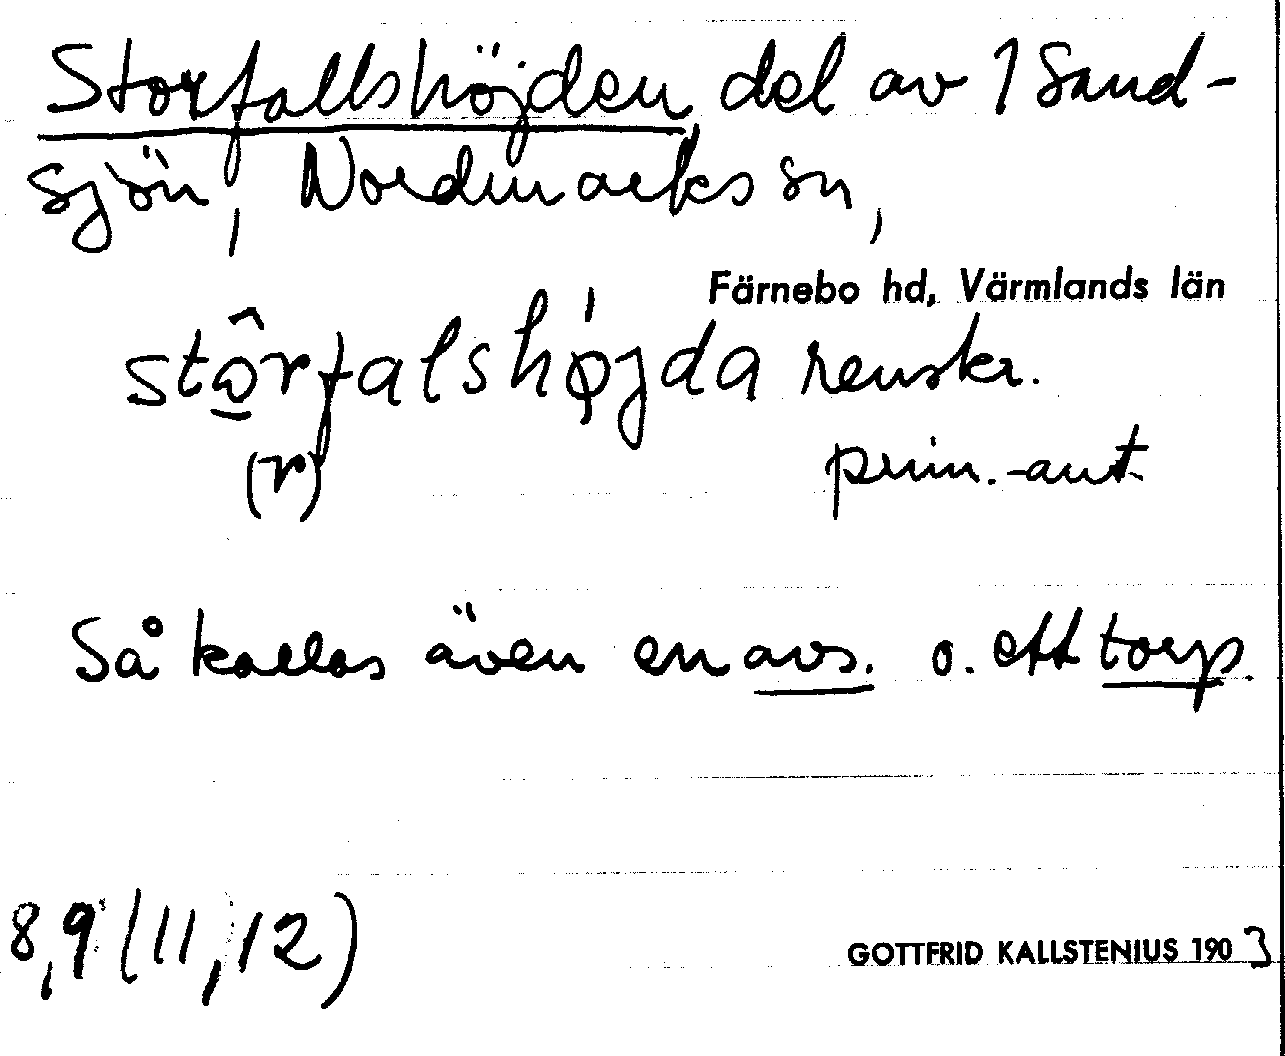 Storfallshöjden, del av 1 Sand-
sjön, Nordmarks sn,
Färnebo hd, Värmlands län
stô̲rfalshø̍jda renskr.
(r) prim.-aut.
Så kallas även en avs. o. ett torp.
8,9 (11,12)
GOTTFRID KALLSTENIUS 1903